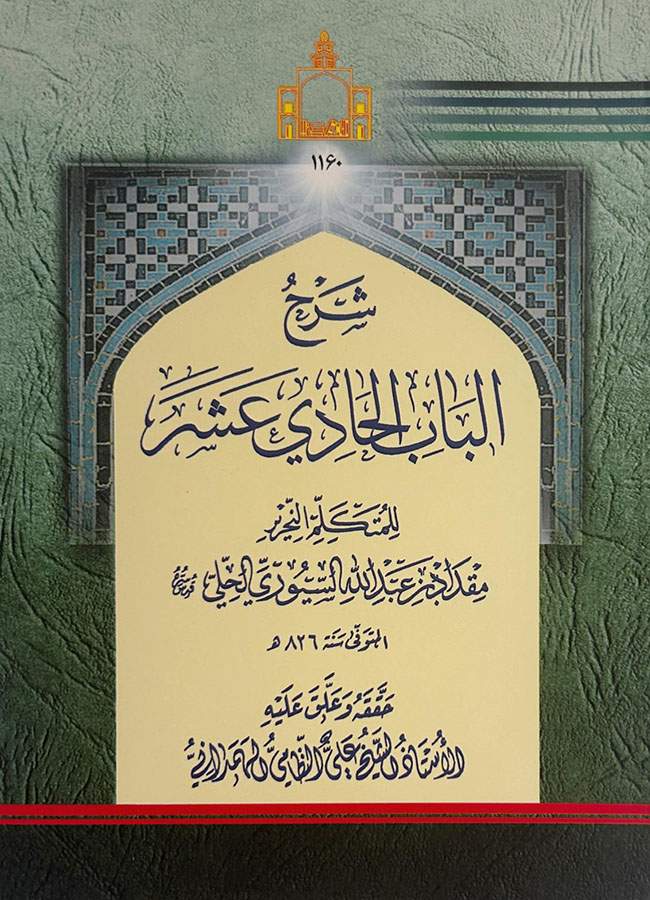 ۱۱۶۰
شَرْحُ
البَابِ الحَادِي عَشَرَ
لِلْمُتَكَلِّمِ النِّحْرِيرِ
مِقْدَادِ بْنِ عَبْدِ اللهِ السُّيُورِيِّ الحِلِّي
المتوفّى سَنَة ٨٢٦ ه
حَقَّقَهُ وَعَلَّقَ عَلَيْهِ
الأُسْتَاذُ الشَّيْخُ عَلِيٌّ النِّظَامِيُّ الهَمَدَانِيُّ